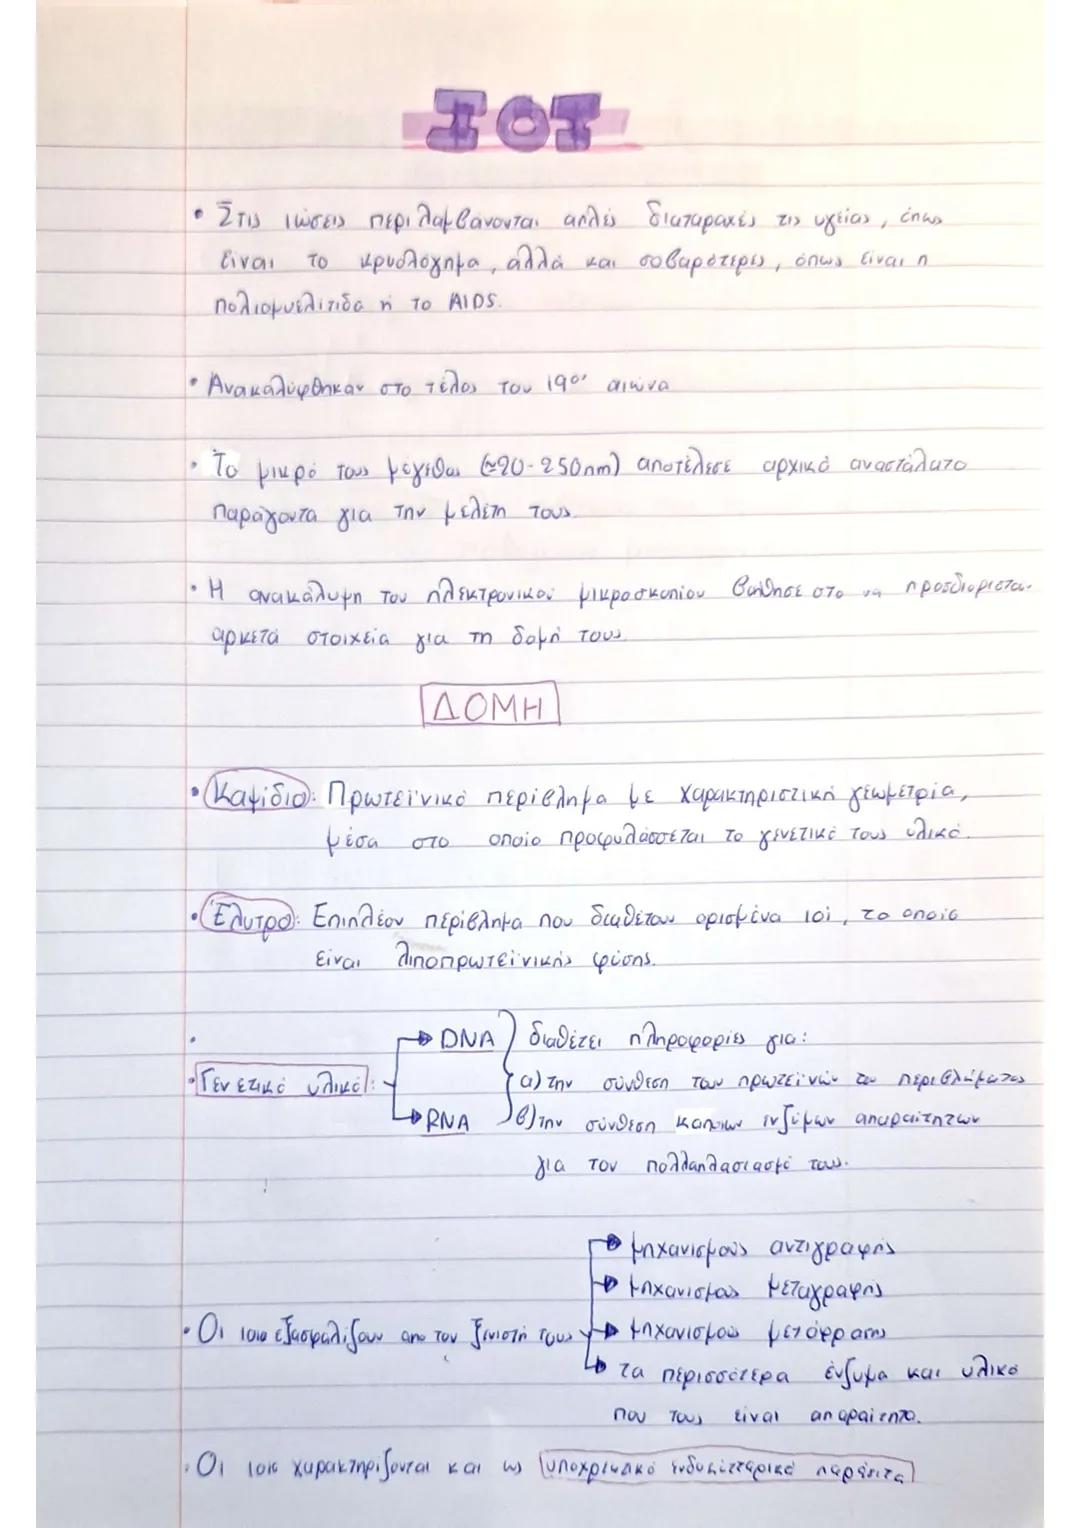 ΙΟΙ
• Στις ιώσεις περιλαμβάνονται απλές διαταραχές της υγείας, όπως
είναι το κρυολόγημα, αλλά και σοβαρότερες, όπως είναι η
πολιομυελίτιδα ή το AIDS.
• Ανακαλύφθηκαν στο τέλος του 19ου αιώνα
• Το μικρό τους μέγεθος (≈20-250nm) αποτέλεσε αρχικά ανασταλτικό
παράγοντα για την μελέτη τους.
• Η ανακάλυψη του ηλεκτρονικού μικροσκοπίου βοήθησε στο να
αρκετά στοιχεία για τη δομή τους.
ΔΟΜΗ
• Καψίδιο: Πρωτεϊνικό περίβλημα με χαρακτηριστική γεωμετρία,
μέσα στο οποίο προφυλάσσεται το γενετικό τους υλικό.
• Έλυτρο: Επιπλέον περίβλημα που διαθέτουν ορισμένα ιοί, το οποίο
είναι λιποπρωτεϊνικής φύσης.
• → DNA } διαθέτει πληροφορίες για:
• Γενετικό υλικό: α) την σύνθεση των πρωτεϊνών του περιβλήματος
→ RNA β) την σύνθεση κάποιων ενζύμων απαραίτητων
για τον πολλαπλασιασμό τους.
→ μηχανισμούς αντιγραφής
→ μηχανισμούς μεταγραφής
• Οι ιοί εξασφαλίζουν από τον ξενιστή τους → μηχανισμούς μετάφρασης
→ τα περισσότερα ένζυμα και υλικά
που τους είναι απαραίτητα.
• Οι ιοί χαρακτηρίζονται και ως υποχρεωτικά ενδοκυτταρικά παράσιτα